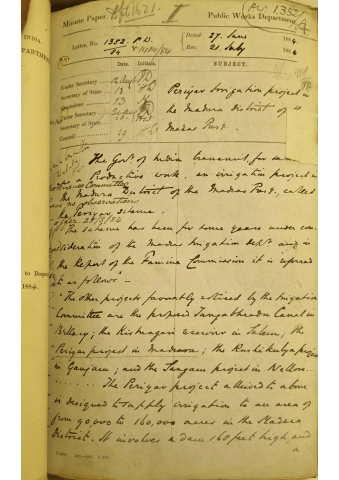 Minute Paper.
Public Works Department.
INDIA
PARTMENT
Letter, No. 1352 P.W.
84
Dated 27 June 1884.
Rec. 21 July 1884.
Date. Initials.
SUBJECT.
Under Secretary
Secretary of State
Committee
Under Secretary
Secretary of State
Council
Periyar Irrigation project in
the Madura District of
Madras Presy.
The Govt of India transmit, for
Productive work, an irrigation project in
the Madura District of the Madras Presy, called
the Periyar Scheme.
The scheme has been for some years under con-
sideration of the Madras Irrigation Dept and in
the Report of the Famine Commission it is referred
to as follows -
"The other projects favorably noticed by the Irrigation
Committee are the proposed Sangabhadra Canal in
Bellary; the Kistnagiri reservoir in Salem; the
Periyar project in Madura; the Rushikulya project
in Ganjam; and the Sangam project in Nellore.
The Periyar project alluded to above
is designed to supply irrigation to an area of
from 90,000 to 160,000 acres in the Madura
District. It involves a dam 160 feet high and
to Despatch
1884.